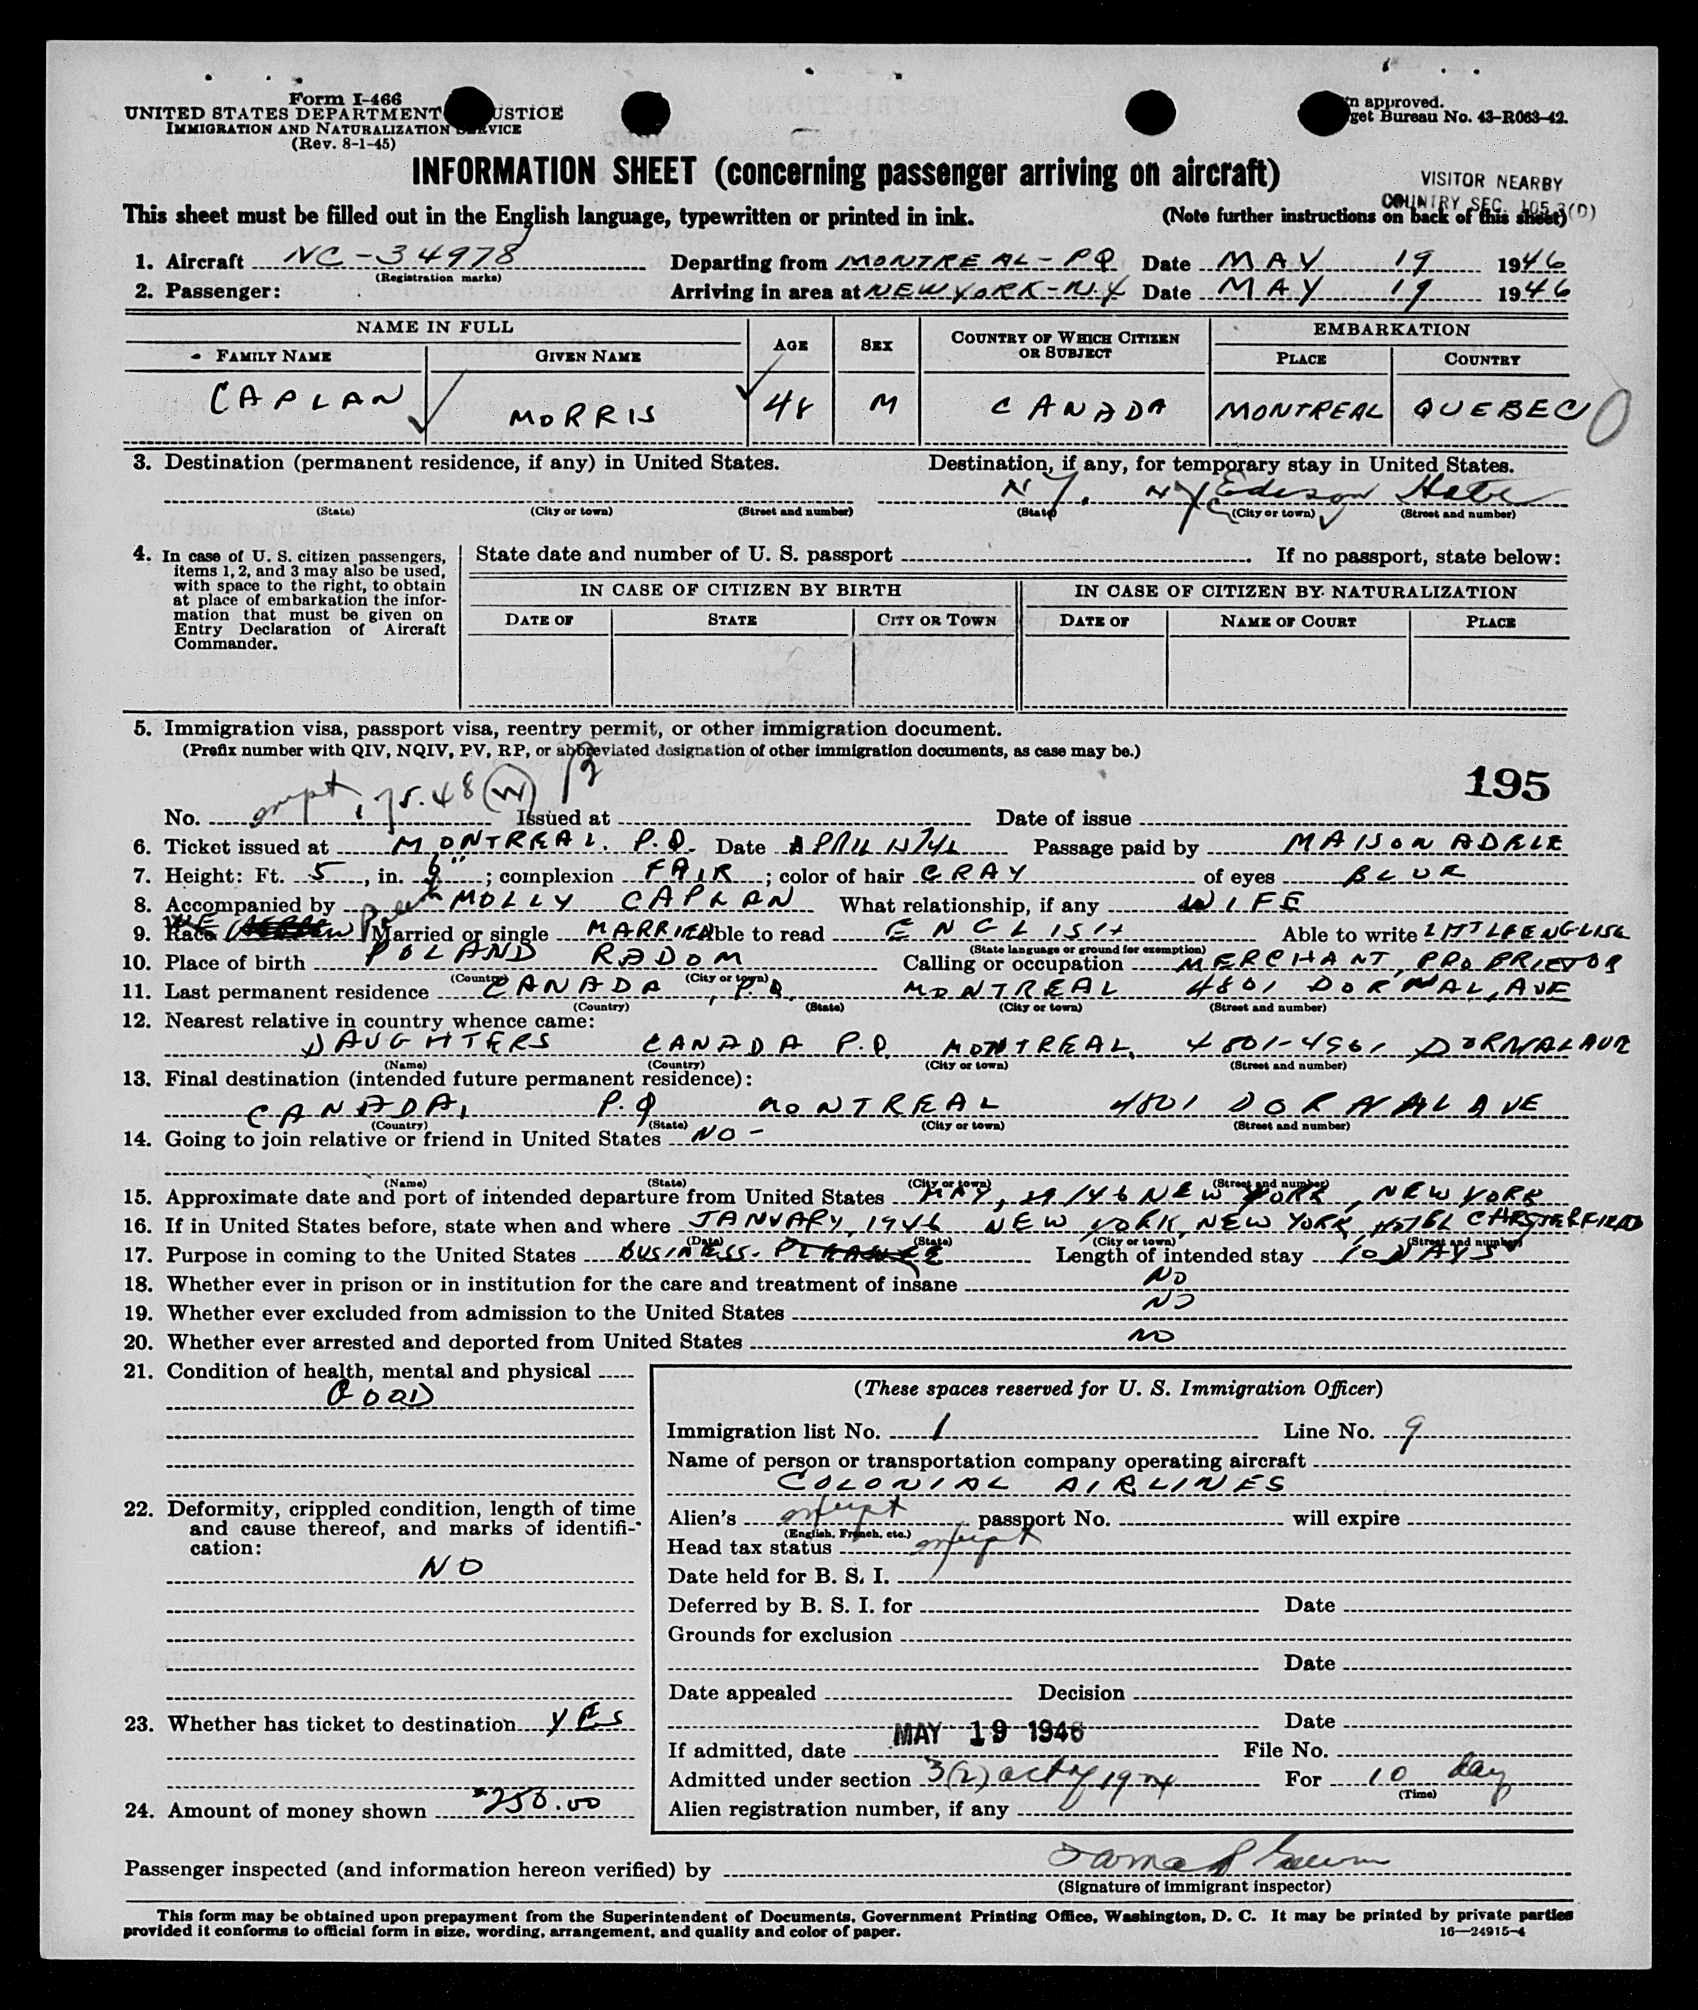 Form I-466
UNITED STATES DEPARTMENT JUSTICE
IMMIGRATION AND NATURALIZATION SERVICE
(Rev. 8-1-45)
approved.
get Bureau No. 43-R063-42.
INFORMATION SHEET (concerning passenger arriving on aircraft)
VISITOR NEARBY
COUNTRY SEC. 105.3(D)
This sheet must be filled out in the English language, typewritten or printed in ink. (Note further instructions on back of this sheet)
1. Aircraft NC-34978 Departing from MONTREAL-PQ Date MAY 19 1946
(Registration marks)
2. Passenger: Arriving in area at NEW YORK-N.Y Date MAY 19 1946
NAME IN FULL AGE SEX COUNTRY OF WHICH CITIZEN OR SUBJECT EMBARKATION
FAMILY NAME GIVEN NAME PLACE COUNTRY
CAPLAN MORRIS 48 M CANADA MONTREAL QUEBEC
3. Destination (permanent residence, if any) in United States. Destination, if any, for temporary stay in United States.
N Y. NY Edison Hotel
(State) (City or town) (Street and number) (State) (City or town) (Street and number)
4. In case of U. S. citizen passengers, items 1, 2, and 3 may also be used, with space to the right, to obtain at place of embarkation the information that must be given on Entry Declaration of Aircraft Commander.
State date and number of U. S. passport If no passport, state below:
IN CASE OF CITIZEN BY BIRTH IN CASE OF CITIZEN BY NATURALIZATION
DATE OF STATE CITY OR TOWN DATE OF NAME OF COURT PLACE
5. Immigration visa, passport visa, reentry permit, or other immigration document.
(Prefix number with QIV, NQIV, PV, RP, or abbreviated designation of other immigration documents, as case may be.)
195
No. exempt 175.48 (W) Issued at Date of issue
6. Ticket issued at MONTREAL. P.Q. Date APRIL Passage paid by MAISON ADELE
7. Height: Ft. 5, in. 6"; complexion FAIR; color of hair GRAY of eyes BLUE
8. Accompanied by MOLLY CAPLAN What relationship, if any WIFE
9. Race Polish Married or single MARRIED Able to read ENGLISH Able to write LITTLE ENGLISH
(State language or ground for exemption)
10. Place of birth POLAND RADOM Calling or occupation MERCHANT, PROPRIETOR
(Country) (City or town)
11. Last permanent residence CANADA, P.Q. MONTREAL 4801 DORNAL, AVE
(Country) (State) (City or town) (Street and number)
12. Nearest relative in country whence came:
DAUGHTERS CANADA P.Q. MONTREAL, 4801-4901 DORNAL AVE
(Name) (Country) (City or town) (Street and number)
13. Final destination (intended future permanent residence):
CANADA, P.Q MONTREAL 4801 DORNAL AVE
(Country) (State) (City or town) (Street and number)
14. Going to join relative or friend in United States NO -
(Name) (State) (City or town) (Street and number)
15. Approximate date and port of intended departure from United States MAY, 29/46 NEW YORK, NEW YORK
16. If in United States before, state when and where JANUARY, 1946 NEW YORK, NEW YORK, HOTEL CHESTERFIELD
(Date) (State) (City or town) (Street and number)
17. Purpose in coming to the United States BUSINESS- PLEASURE Length of intended stay 10 DAYS
18. Whether ever in prison or in institution for the care and treatment of insane NO
19. Whether ever excluded from admission to the United States NO
20. Whether ever arrested and deported from United States NO
21. Condition of health, mental and physical
GOOD
22. Deformity, crippled condition, length of time and cause thereof, and marks of identification:
NO
23. Whether has ticket to destination YES
24. Amount of money shown $250.00
(These spaces reserved for U. S. Immigration Officer)
Immigration list No. 1 Line No. 9
Name of person or transportation company operating aircraft
COLONIAL AIRLINES
Alien's exempt passport No. will expire
(English, French, etc.)
Head tax status exempt
Date held for B. S. I.
Deferred by B. S. I. for Date
Grounds for exclusion
Date
Date appealed Decision
Date
If admitted, date MAY 19 1946 File No.
Admitted under section 3(2) act of 1924 For 10 day
(Time)
Alien registration number, if any
Passenger inspected (and information hereon verified) by
(Signature of immigrant inspector)
This form may be obtained upon prepayment from the Superintendent of Documents, Government Printing Office, Washington, D. C. It may be printed by private parties
provided it conforms to official form in size, wording, arrangement, and quality and color of paper. 16—24915-4